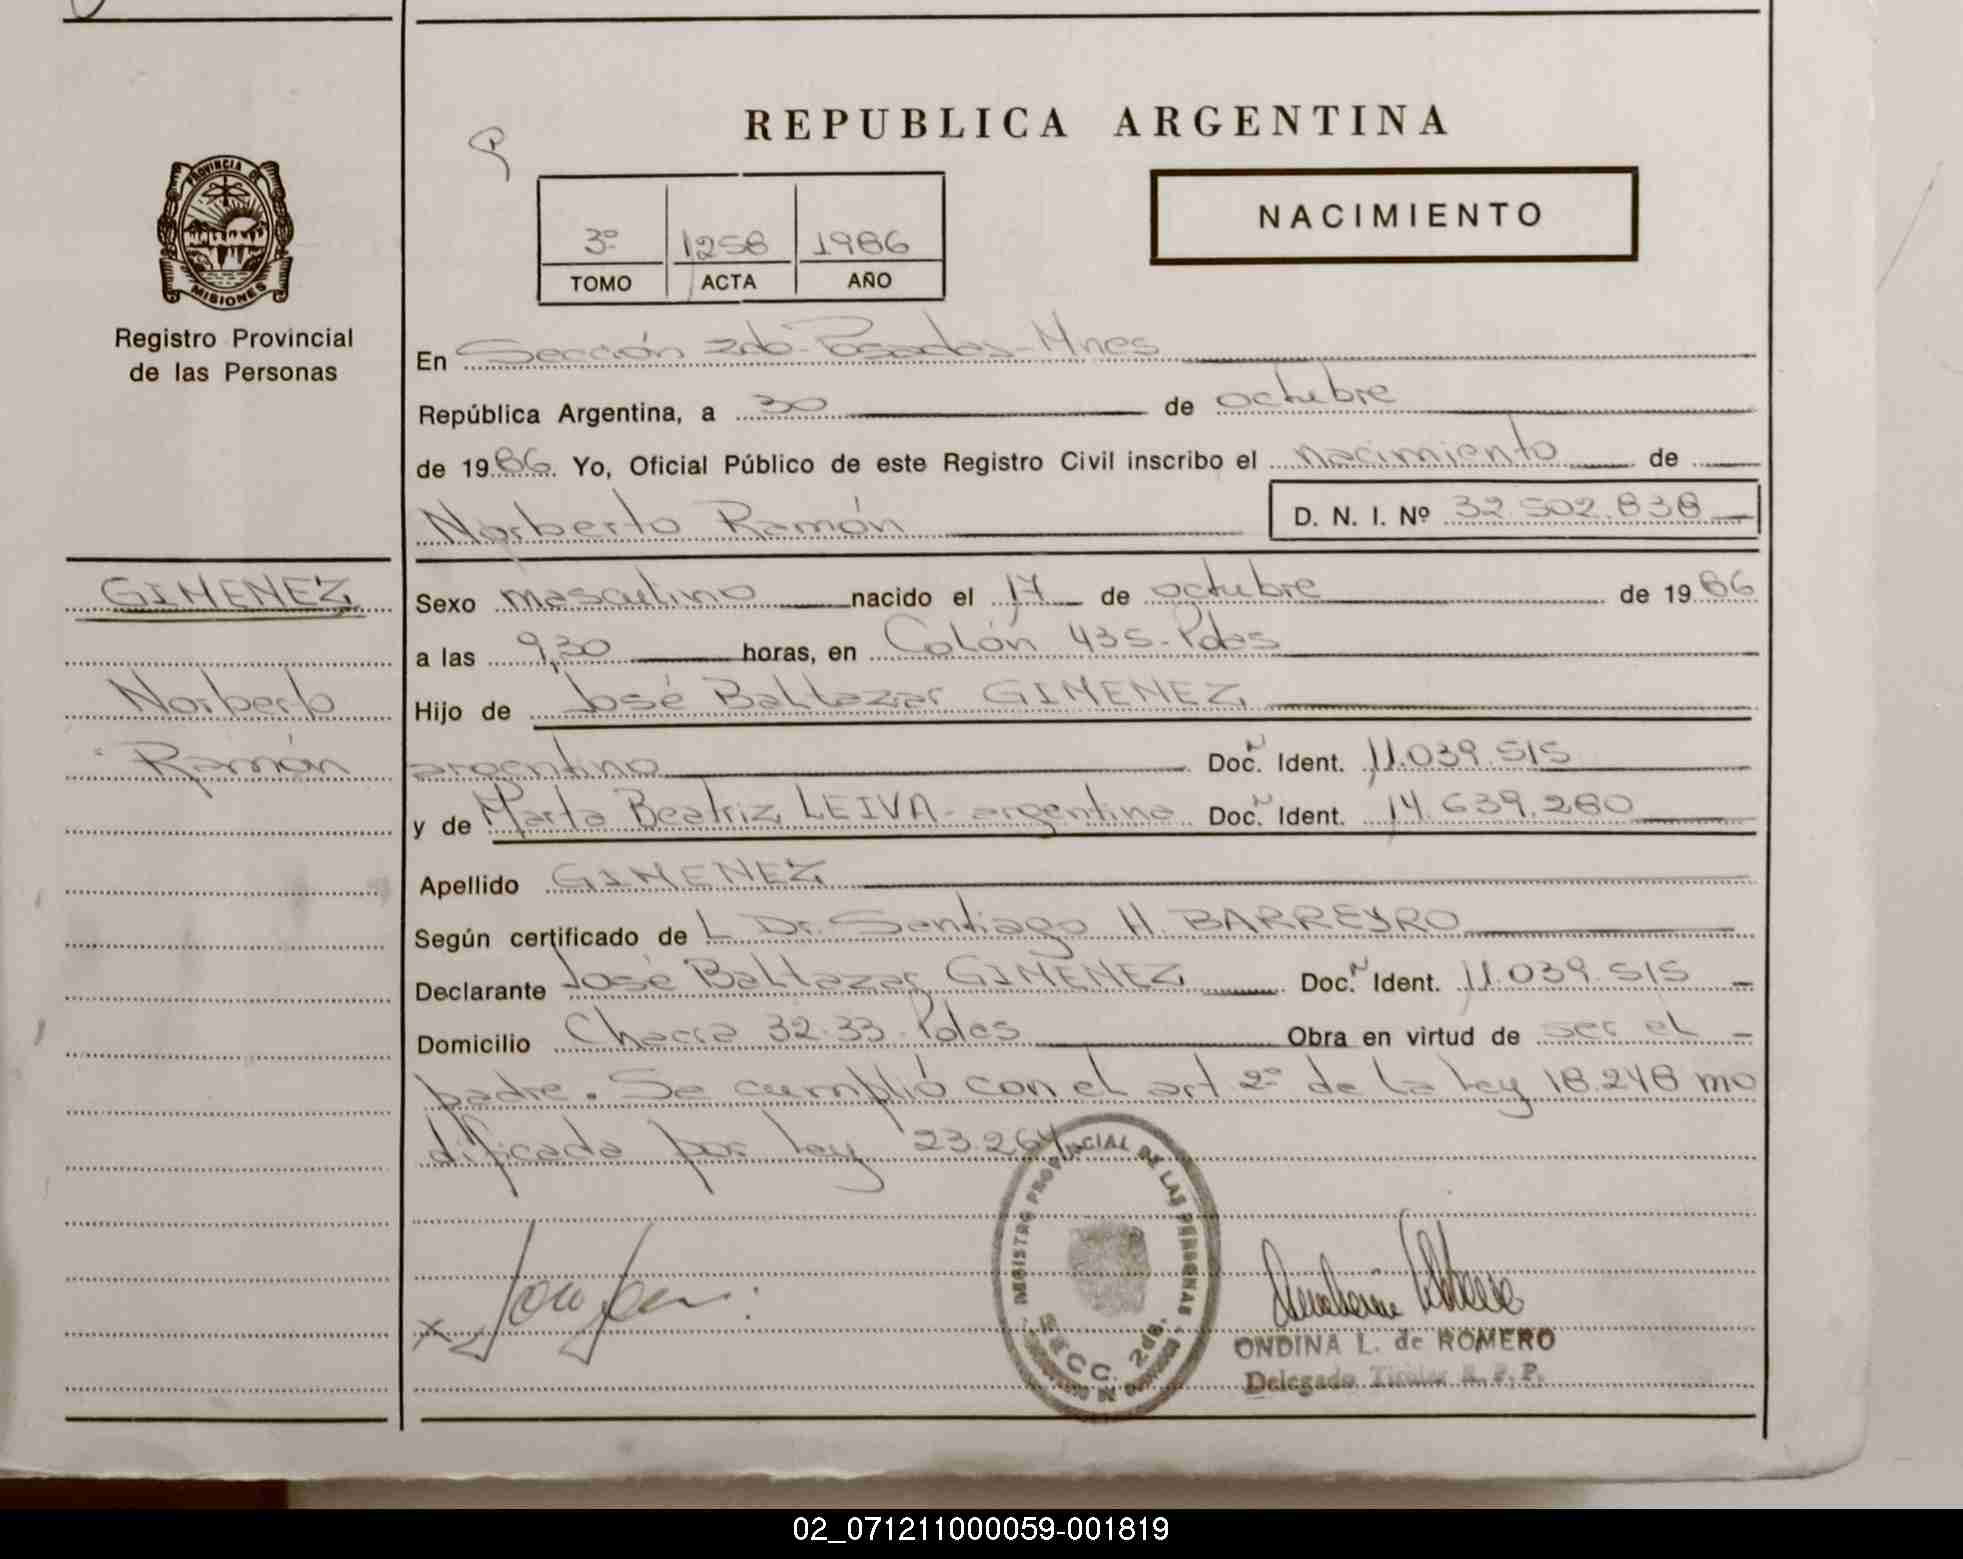 REPUBLICA ARGENTINA
PROVINCIA DE
MISIONES
Registro Provincial
de las Personas
3º 1258 1986
TOMO ACTA AÑO
NACIMIENTO
En Sección 2da- Posadas-Mnes
República Argentina, a 30 de octubre
de 1986. Yo, Oficial Público de este Registro Civil inscribo el nacimiento de
Norberto Ramón D. N. I. Nº 32.502.838
GIMENEZ
Norberto
Ramón
Sexo masculino nacido el 17 de octubre de 1986
a las 9,30 horas, en Colón 435-Pdas
Hijo de José Baltazar GIMENEZ
argentino Doc. Ident. 11.039.515
y de Marta Beatriz LEIVA-argentina Doc. Ident. 14.639.280
Apellido GIMENEZ
Según certificado de L Dr. Santiago H. BARREYRO
Declarante José Baltazar GIMENEZ Doc. Ident. 11.039.515
Domicilio Chacra 32-33-Pdas Obra en virtud de ser el
padre. Se cumplió con el art 2º de la ley 18.248 mo
dificada por ley 23.264
REGISTRO PROVINCIAL DE LAS PERSONAS
SECC. 2da.
ONDINA L. de ROMERO
Delegado Titular R. P. P.
02_071211000059-001819